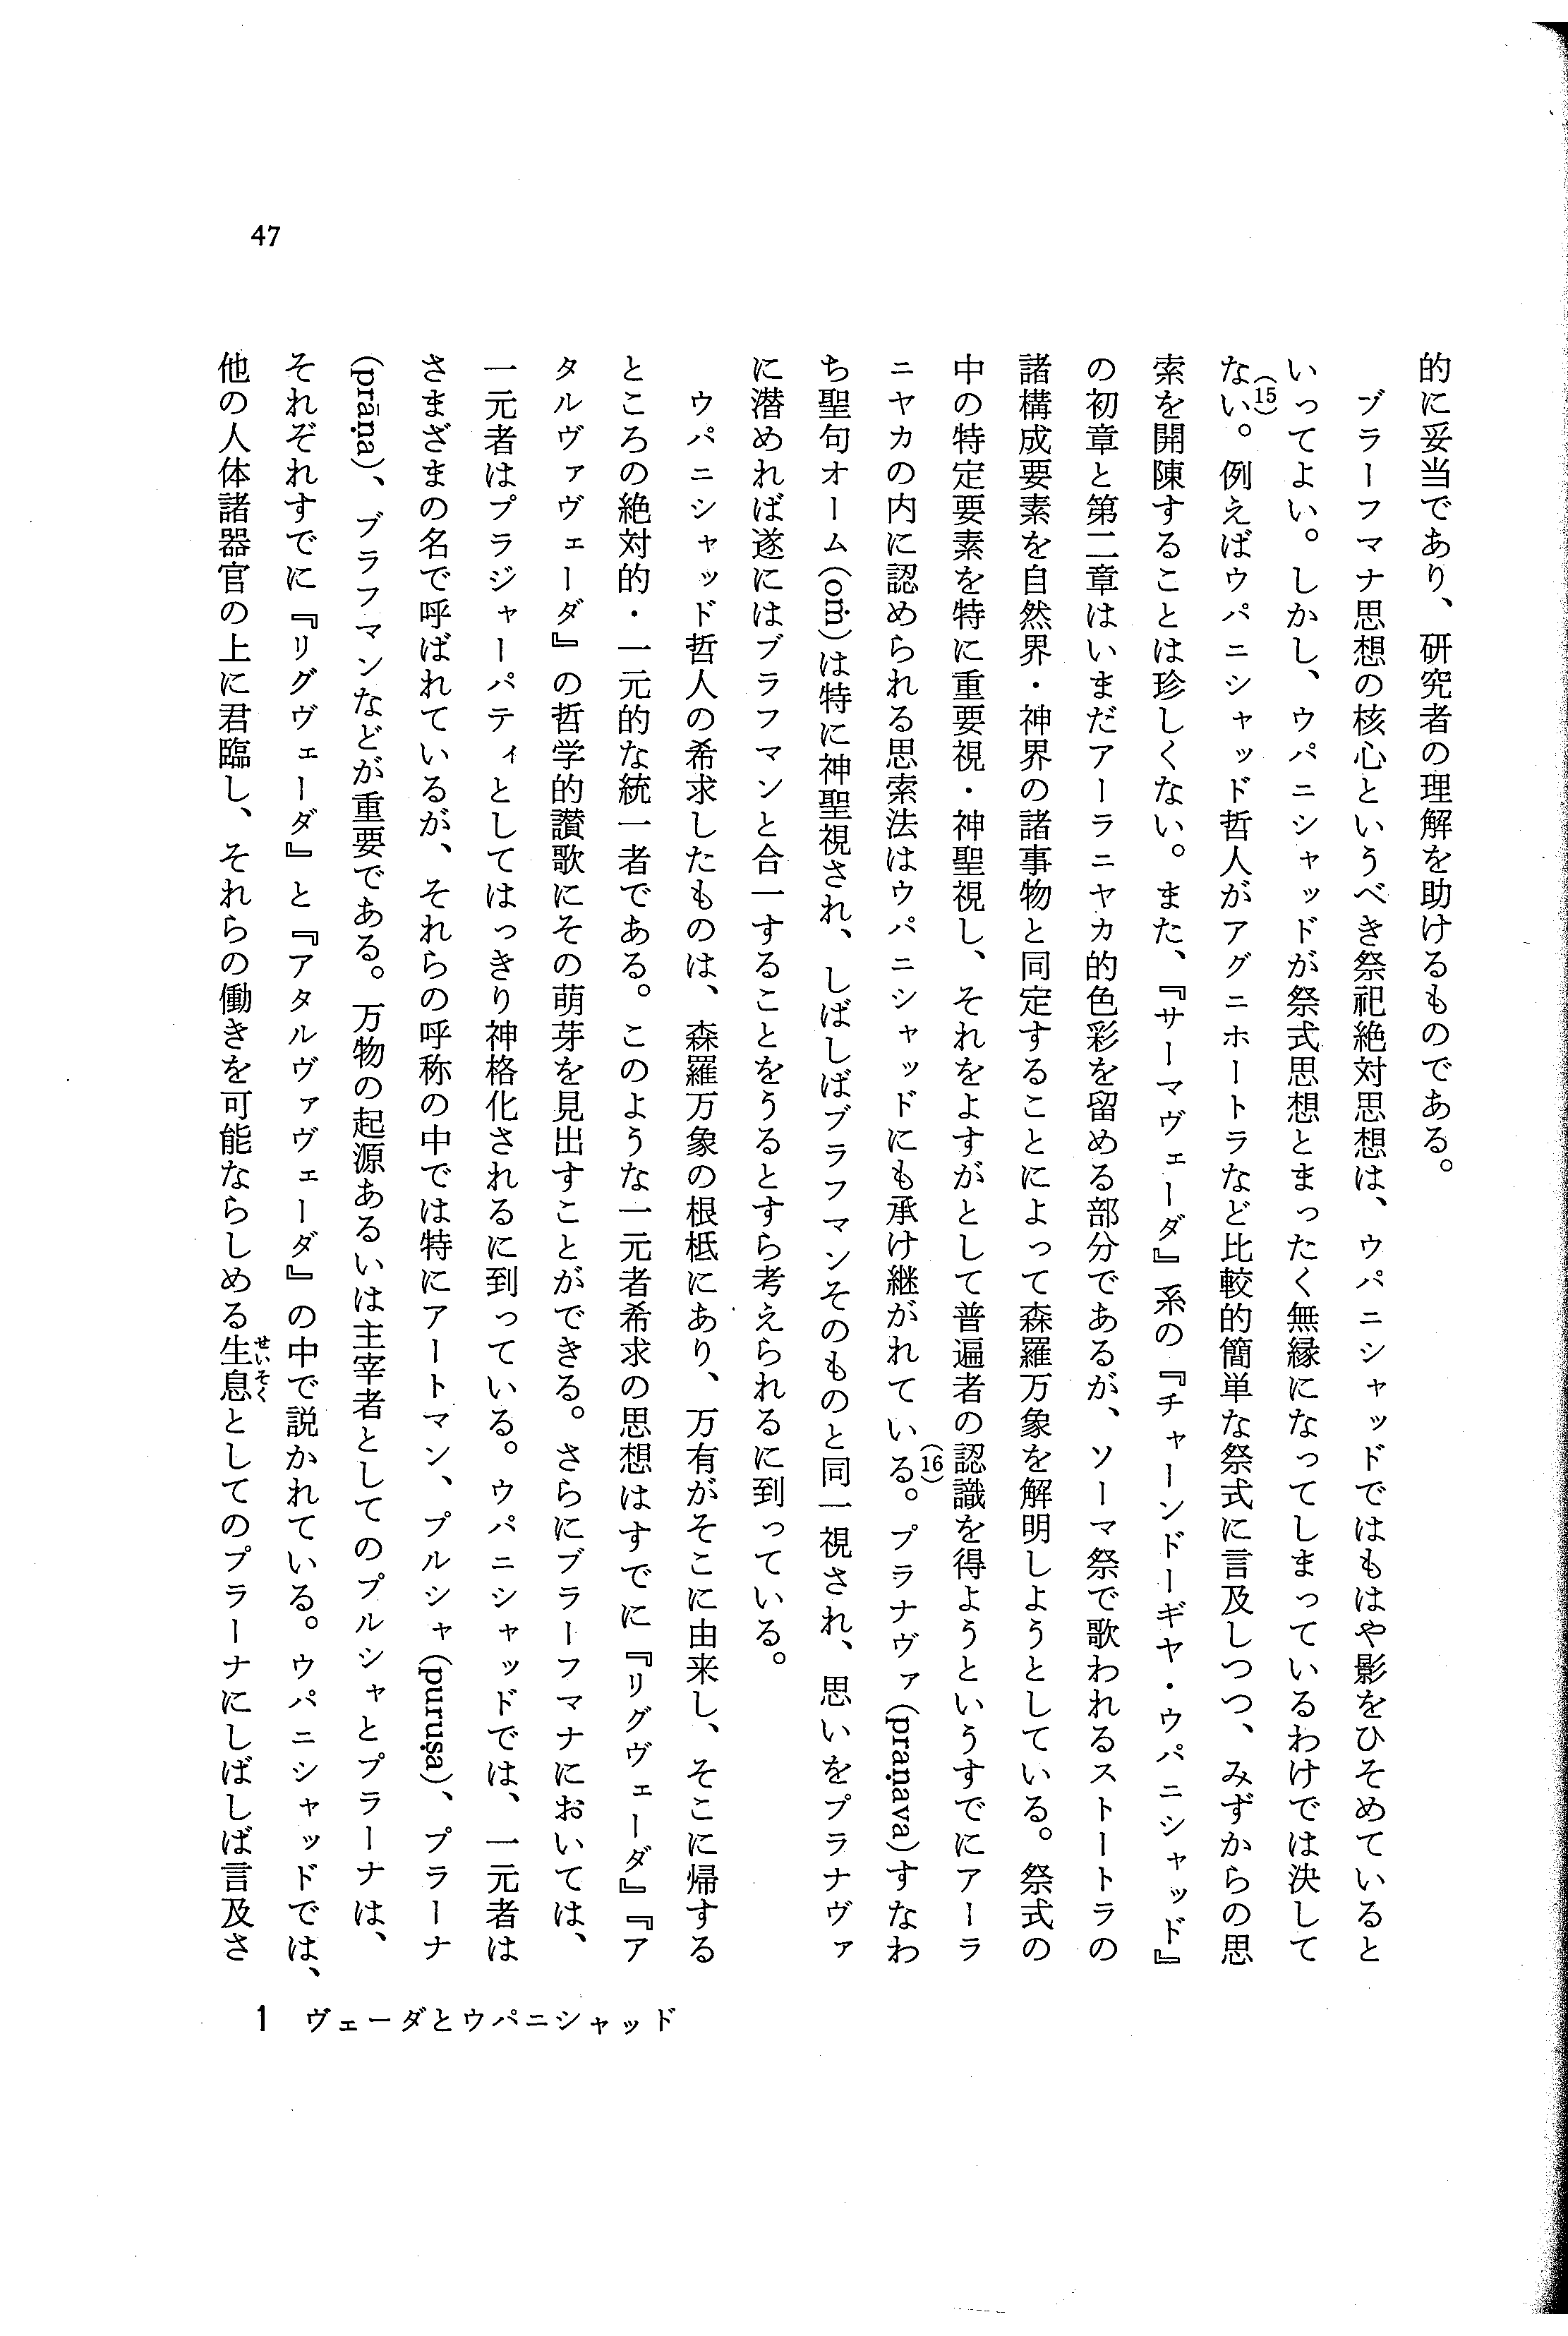 47
的に妥当であり、研究者の理解を助けるものである。
　ブラーフマナ思想の核心というべき祭祀絶対思想は、ウパニシャッドではもはや影をひそめていると
いってよい。しかし、ウパニシャッドが祭式思想とまったく無縁になってしまっているわけでは決して
ない(15)。例えばウパニシャッド哲人がアグニホートラなど比較的簡単な祭式に言及しつつ、みずからの思
索を開陳することは珍しくない。また、『サーマヴェーダ』系の『チャーンドーギヤ・ウパニシャッド』
の初章と第二章はいまだアーラニヤカ的色彩を留める部分であるが、ソーマ祭で歌われるストートラの
諸構成要素を自然界・神界の諸事物と同定することによって森羅万象を解明しようとしている。祭式の
中の特定要素を特に重要視・神聖視し、それをよすがとして普遍者の認識を得ようというすでにアーラ
ニヤカの内に認められる思索法はウパニシャッドにも承け継がれている(16)。プラナヴァ(praṇava)すなわ
ち聖句オーム(oṁ)は特に神聖視され、しばしばブラフマンそのものと同一視され、思いをプラナヴァ
に潜めれば遂にはブラフマンと合一することをうるとすら考えられるに到っている。
　ウパニシャッド哲人の希求したものは、森羅万象の根柢にあり、万有がそこに由来し、そこに帰する
ところの絶対的・一元的な統一者である。このような一元者希求の思想はすでに『リグヴェーダ』『ア
タルヴァヴェーダ』の哲学的讃歌にその萌芽を見出すことができる。さらにブラーフマナにおいては、
一元者はプラジャーパティとしてはっきり神格化されるに到っている。ウパニシャッドでは、一元者は
さまざまの名で呼ばれているが、それらの呼称の中では特にアートマン、プルシャ(puruṣa)、プラーナ
(prāṇa)、ブラフマンなどが重要である。万物の起源あるいは主宰者としてのプルシャとプラーナは、
それぞれすでに『リグヴェーダ』と『アタルヴァヴェーダ』の中で説かれている。ウパニシャッドでは、
他の人体諸器官の上に君臨し、それらの働きを可能ならしめる生息せいそくとしてのプラーナにしばしば言及さ
1　ヴェーダとウパニシャッド